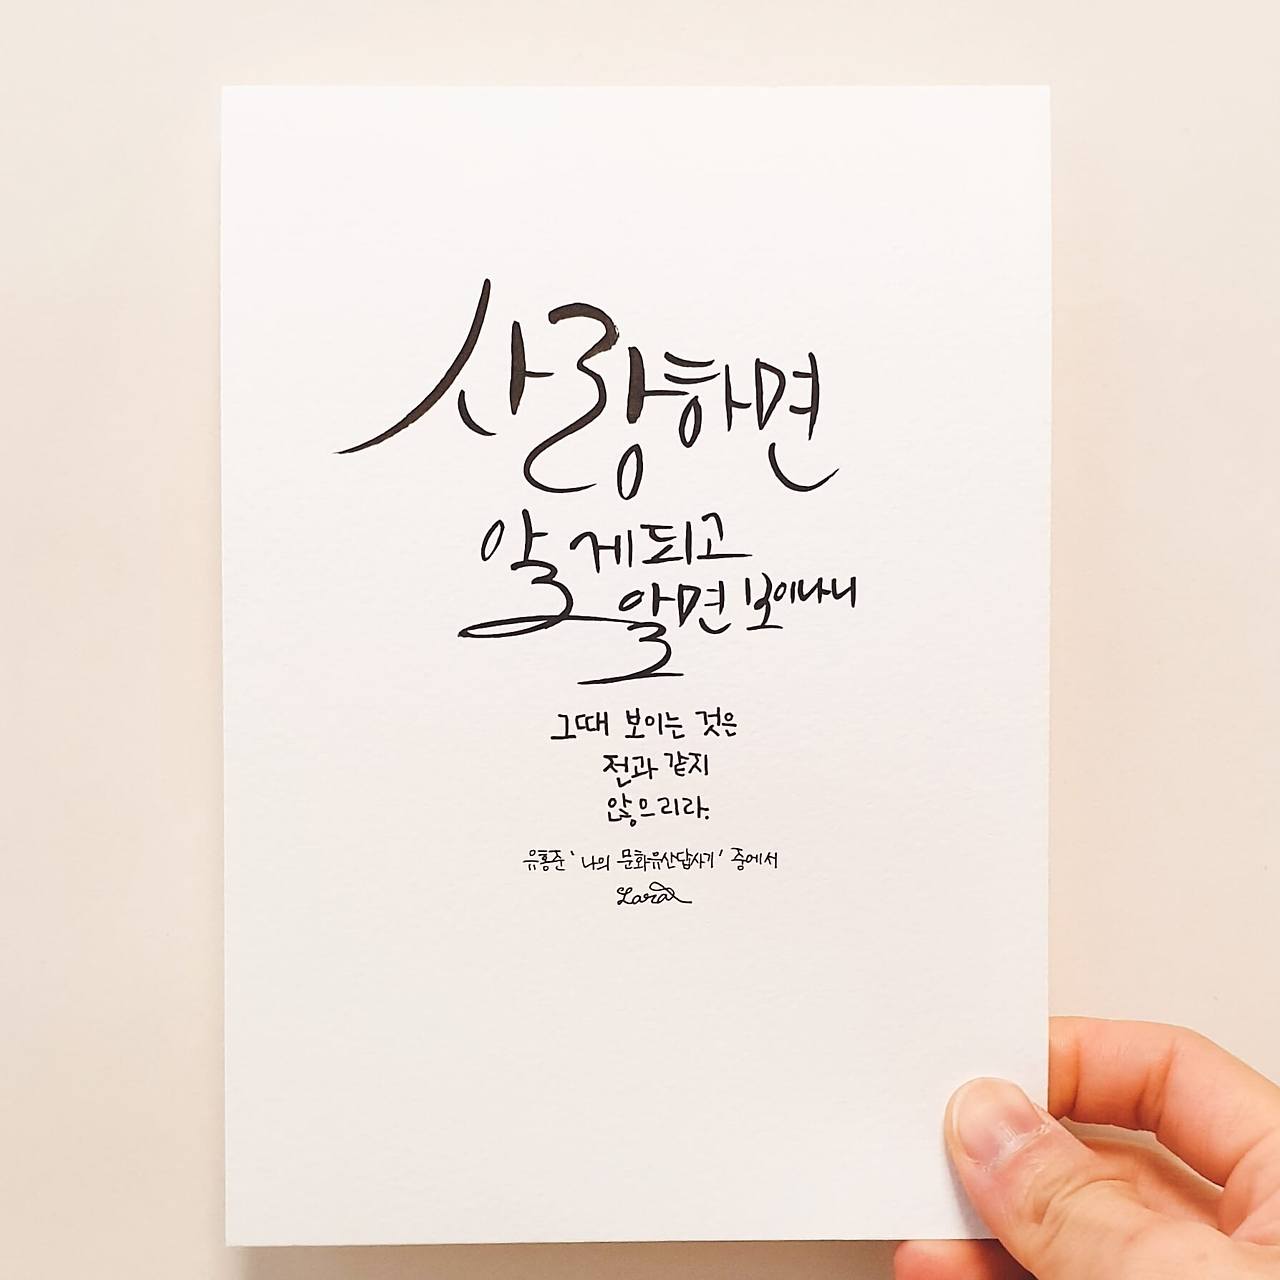 사랑하면
알게되고
알면 보이나니
그때 보이는 것은
전과 같지
않으리라.
유홍준 '나의 문화유산답사기' 중에서
Lara